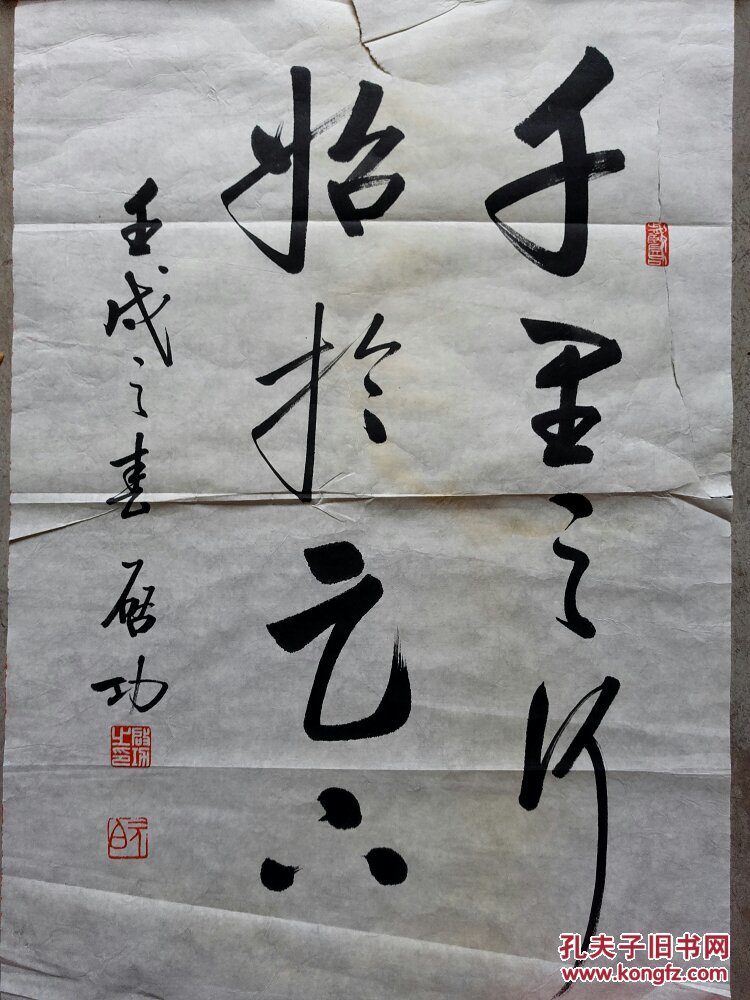 千里之行
始於足下
壬戌之春 启功
啟功之印
元白
孔夫子旧书网
www.kongfz.com